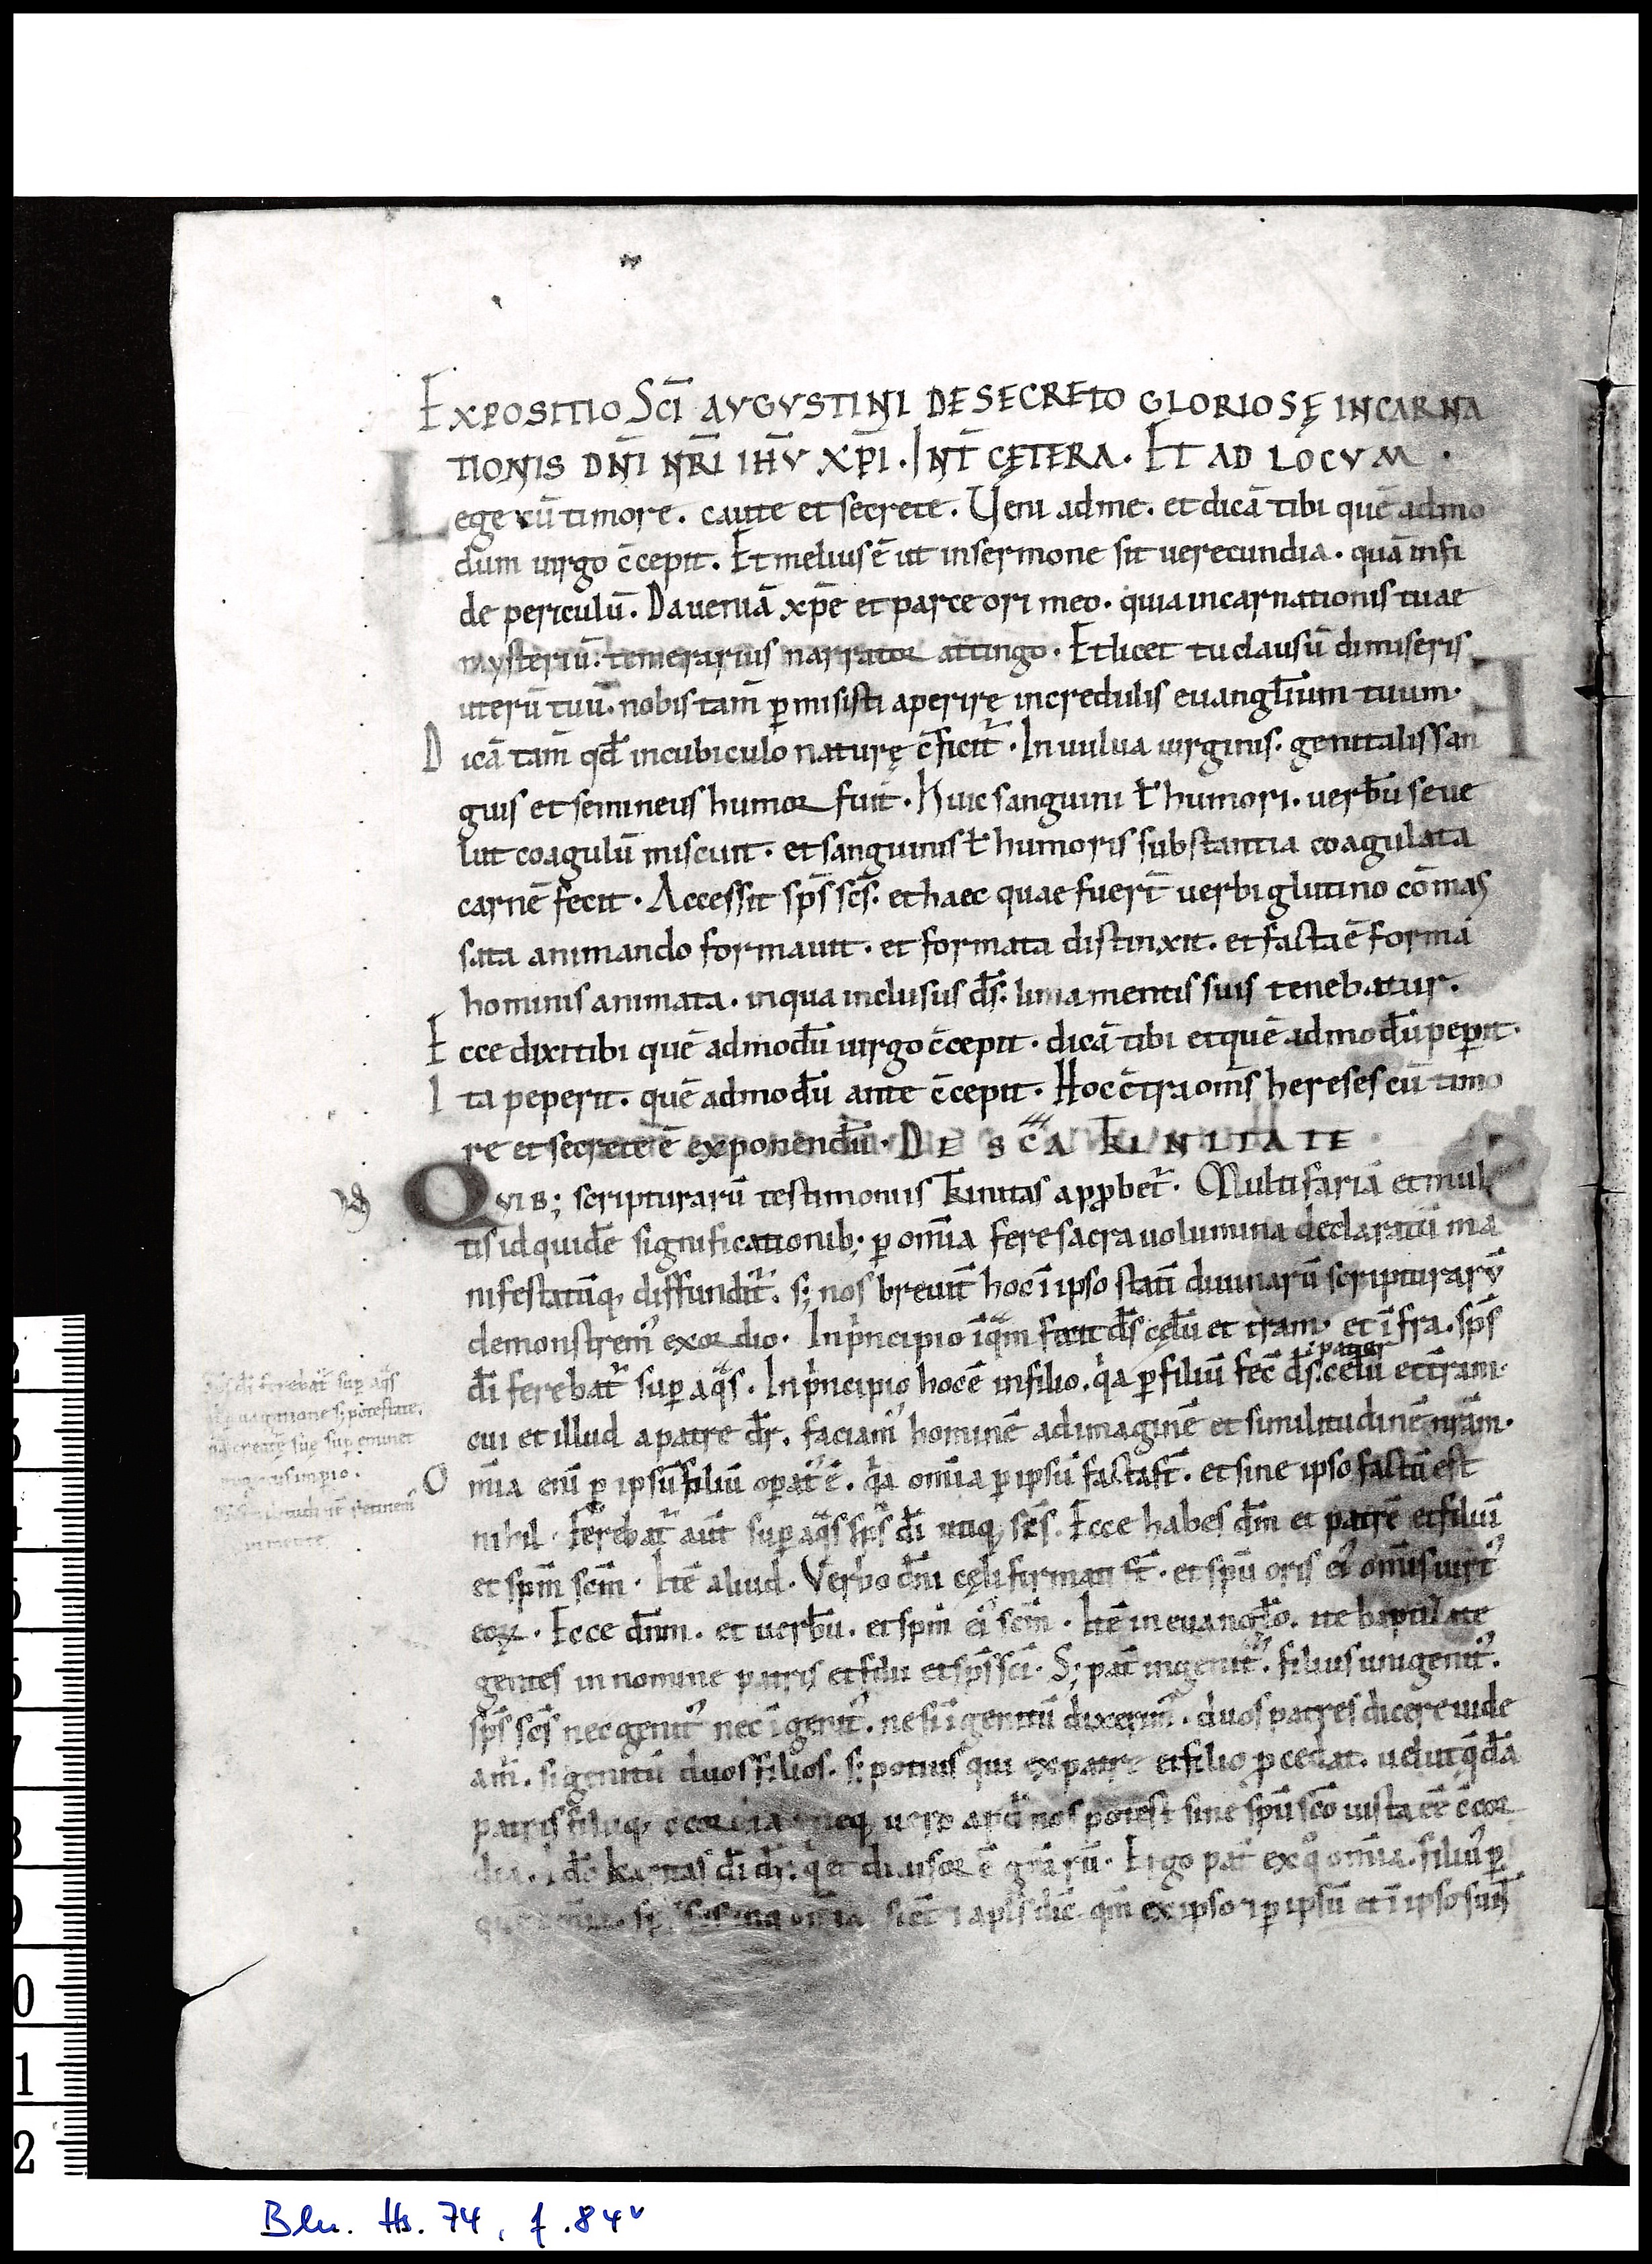 EXPOSITIO SC̄I AVGVSTINI DE SECRETO GLORIOSĘ INCARNA
TIONIS DN̄I NR̄I IH̄V XP̄I. INT̄ CĘTERA. ET AD LOCVM.
Lege cū timore. caute et secrete. Veni ad me. et dicā tibi quē admo
dum uirgo c̄cepit. Et melius ē ut in sermone sit uerecundia. quā in fi
de periculū. Da ueniā xp̄e et parce ori meo. quia incarnationis tuae
mysteriū. temerarius narrator attingo. Et licet tu clausū dimiseris
uterū tuū. nobis tam̄ p̱misisti aperire incredulis euangl̄ium tuum.
Dicā tam̄ qđ in cubiculo naturę c̄ficit᷑. In uulua uirginis. genitalis san
guis et semineus humor fuit. Huic sanguini ł humori. uerbū se ue
lut coagulū miscuit. et sanguinis ł humoris substantia coagulata
carnē fecit. Accessit sp̄s sc̄s. et haec quae fuer̄t uerbi glutino cōmas
sata animando formauit. et formata distinxit. et facta ē forma
hominis animata. in qua inclusus d̄s. liniamentis suis tenebatur.
Ecce dixi tibi quē admodū uirgo c̄cepit. dicā tibi et quē admodū pep̱it.
Ita peperit. quē admodū ante c̄cepit. Hoc c̄tra om̄s hereses cū timo
re et secrete ē exponendū. DE SC̄A TRINITATE
QVIB; scripturarū testimoniis trinitas app̱bet᷑. Multifariā et mul
tis id quidē significationib; p̱ om̄ia fere sacra uolumina declaratū ma
nifestatūq, diffundit᷑. s; nos breuit̄ hoc ī ipso statī diuinarū scripturarū
demonstrem᷒ exordio. In pͥncipio īqͣm fecit d̄s cęlū et t̄ram. et īfra. sp̄s
d̄i ferebat᷑ sup̱ aqͣs. In pͥncipio hoc ē in filio. qͥa p̱ filiū fec̄ d̄s pater celū et t̄ram.
cui et illud a patre dr̄. faciam᷒ hominē ad imaginē et similitudinē nr̄am.
Om̄ia eni p̱ ipsū filiū op̱at᷒ ē. qͥa om̄ia p̱ ipsū facta st̄. et sine ipso factū est
nihil. Ferebat᷑ aut̄ sup̱ aqͣs sp̄s d̄i utiq, sc̄s. Ecce habes dm̄ et patrē et filiū
et spm̄ scm̄. Itē aliud. Verbo dn̄i cęli firmati st̄. et spū oris ei᷒ om̄is uirt᷒
eoꝝ. Ecce dn̄m. et uerbū. et spm̄ ei᷒ scm̄. Itē in euanglo. ite baptizate
gentes in nomine patris et filii et sp̄s sc̄i. S; pat̄ ingenit᷒. filius unigenit᷒.
sp̄s sc̄s nec genit᷒ nec īgenit᷒. ne si īgenitū dixerim᷒. duos patres dicere uide
am᷑. si genitū duos filios. s; potius qui ex patre et filio p̱cedat. uelut qͥdā
patris filiiq, c̄cordia. neq, uero apđ nos potest sine spū sc̄o iusta eē c̄cor
dia. Id̄o karitas d̄i dr̄. qͥ et diuisor ē gr̄arū. Ergo pat̄ ex qͦ om̄ia. filiu᷒ p̱
sic̄ apl̄s dic̄. qm̄ ex ipso ⁊ p̱ ipsū et ī ipso sun̄t
d̄i ferebat᷑ sup̱ aqͣs
s; potestate.
creatę suę sup̱ eminet
Bln. Hs. 74, f. 84v